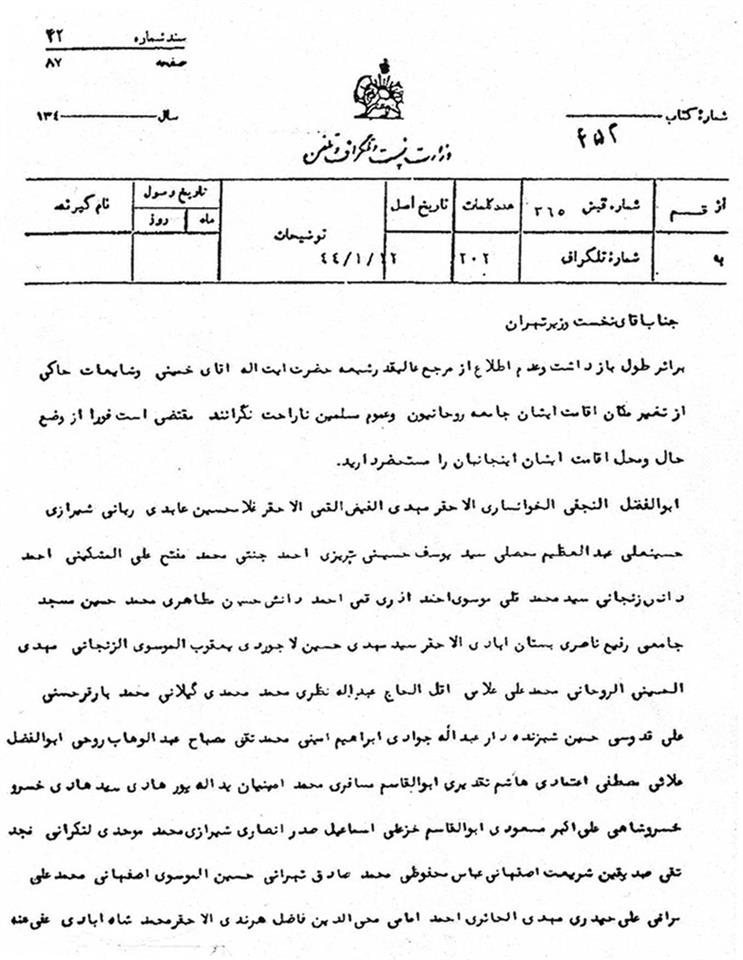 سند شماره ۴۲
صفحه ۸۷
سال ۱۳۴۰
شمارهٔ کتاب
۴۵۲
وزارت پست و تلگراف و تلفن
از قسم
شماره قبض ۲۶۵
عدد کلمات
تاریخ اصل
توضیحات
تاریخ وصول
ماه روز
نام گیرنده
به
شمارهٔ تلگراف
۲۰۲
۴۴/۱/۲۲
جناب اقای نخست وزیر تهران
براثر طول بازداشت وعدم اطلاع از مرجع عالیقدر شیعه حضرت ایت اله اقای خمینی وشایعات حاکی
از تغییر مکان اقامت ایشان جامعه روحانیون وعموم مسلمین ناراحت نگرانند مقتضی است فورا از وضع
حال ومحل اقامت ایشان اینجانبان را مستحضر دارید.
ابوالفضل النجفی الخوانساری الاحقر مهدی الفیض القمی الاحقر غلامحسین عابدی ربانی شیرازی
حسینعلی عبدالعظیم محصلی سید یوسف حسینی تبریزی احمد جنتی محمد مفتح علی المشکینی احمد
زنجانی سید محمد تقی موسوی احمد اذری قمی احمد دانش حسین مظاهری محمد حسین مسجد
جامعی رفیع ناصری بستان ابادی الاحقر سید مهدی حسین لاجوردی یعقوب الموسوی الزنجانی مهدی
الحسینی الروحانی محمد علی اقل الحاج عبداله نظری محمد محمدی گیلانی محمد باقر حسنی
علی قدوسی حسین شبزنده دار عبداله جوادی ابراهیم امینی محمد تقی مصباح عبدالوهاب روحی ابوالفضل
علائی مصطفی اعتمادی هاشم تقدیری ابوالقاسم مسافری محمد امینیان یداله پور هادی سید هادی خسرو
خسروشاهی علی اکبر مسعودی ابوالقاسم خزعلی اسماعیل صدر انصاری شیرازی محمد موحدی لنکرانی نجد
تقی صدیقین شریعت اصفهانی عباس محفوظی محمد صادق تهرانی حسین الموسوی اصفهانی محمد علی
علی حیدری مهدی الحائری احمد امامی محی الدین فاضل هرندی الاحقر محمد شاه ابادی عفی عنه